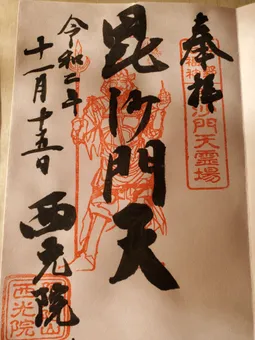 奉拝
沙門天霊場
毘沙門天
令和二年
十一月十五日
西光院
西光院